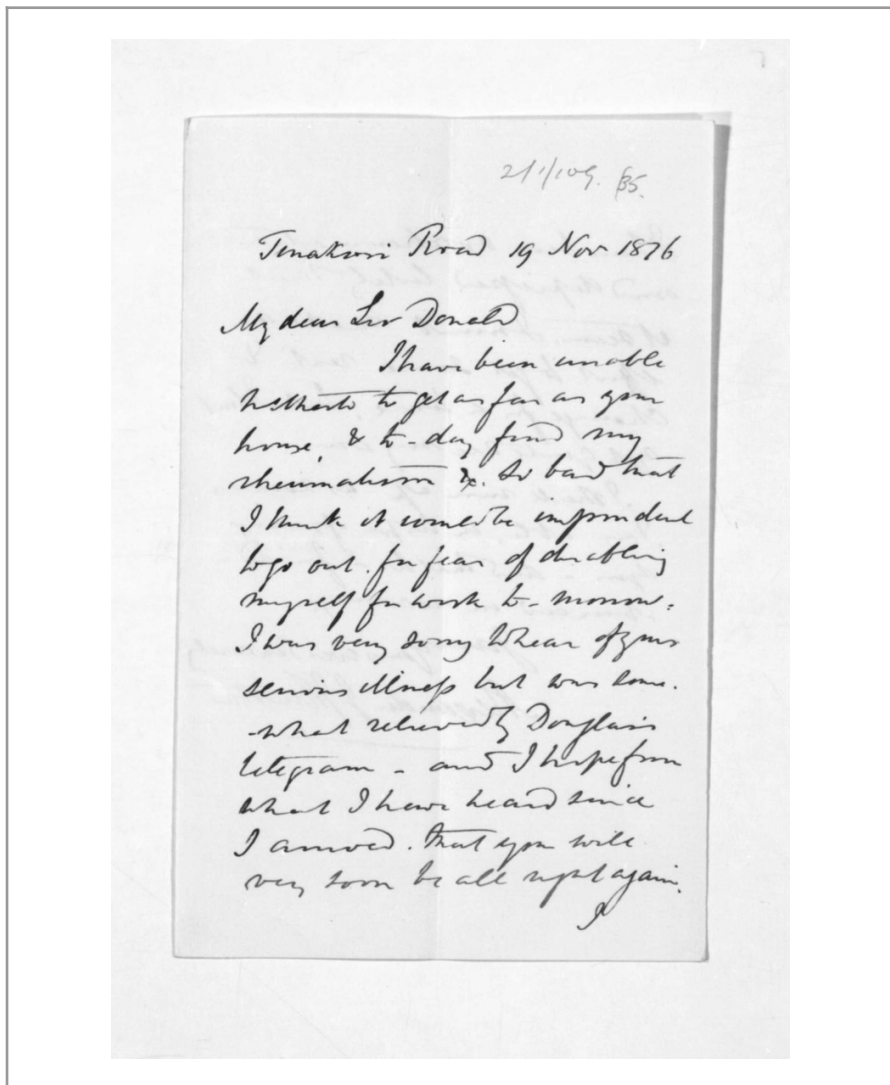 2/1/109. 35.
Tinakori Road 19 Nov 1876
My dear Sir Donald
I have been unable
hitherto to get as far as your
house, & to-day find my
rheumatism &c. so bad that
I think it would be imprudent
to go out for fear of disabling
myself for work to-morrow.
I was very sorry to hear of your
serious illness but was some-
-what relieved by Douglas's
telegram - and I hope from
what I have heard since
I arrived. that you will
very soon be all right again.
I